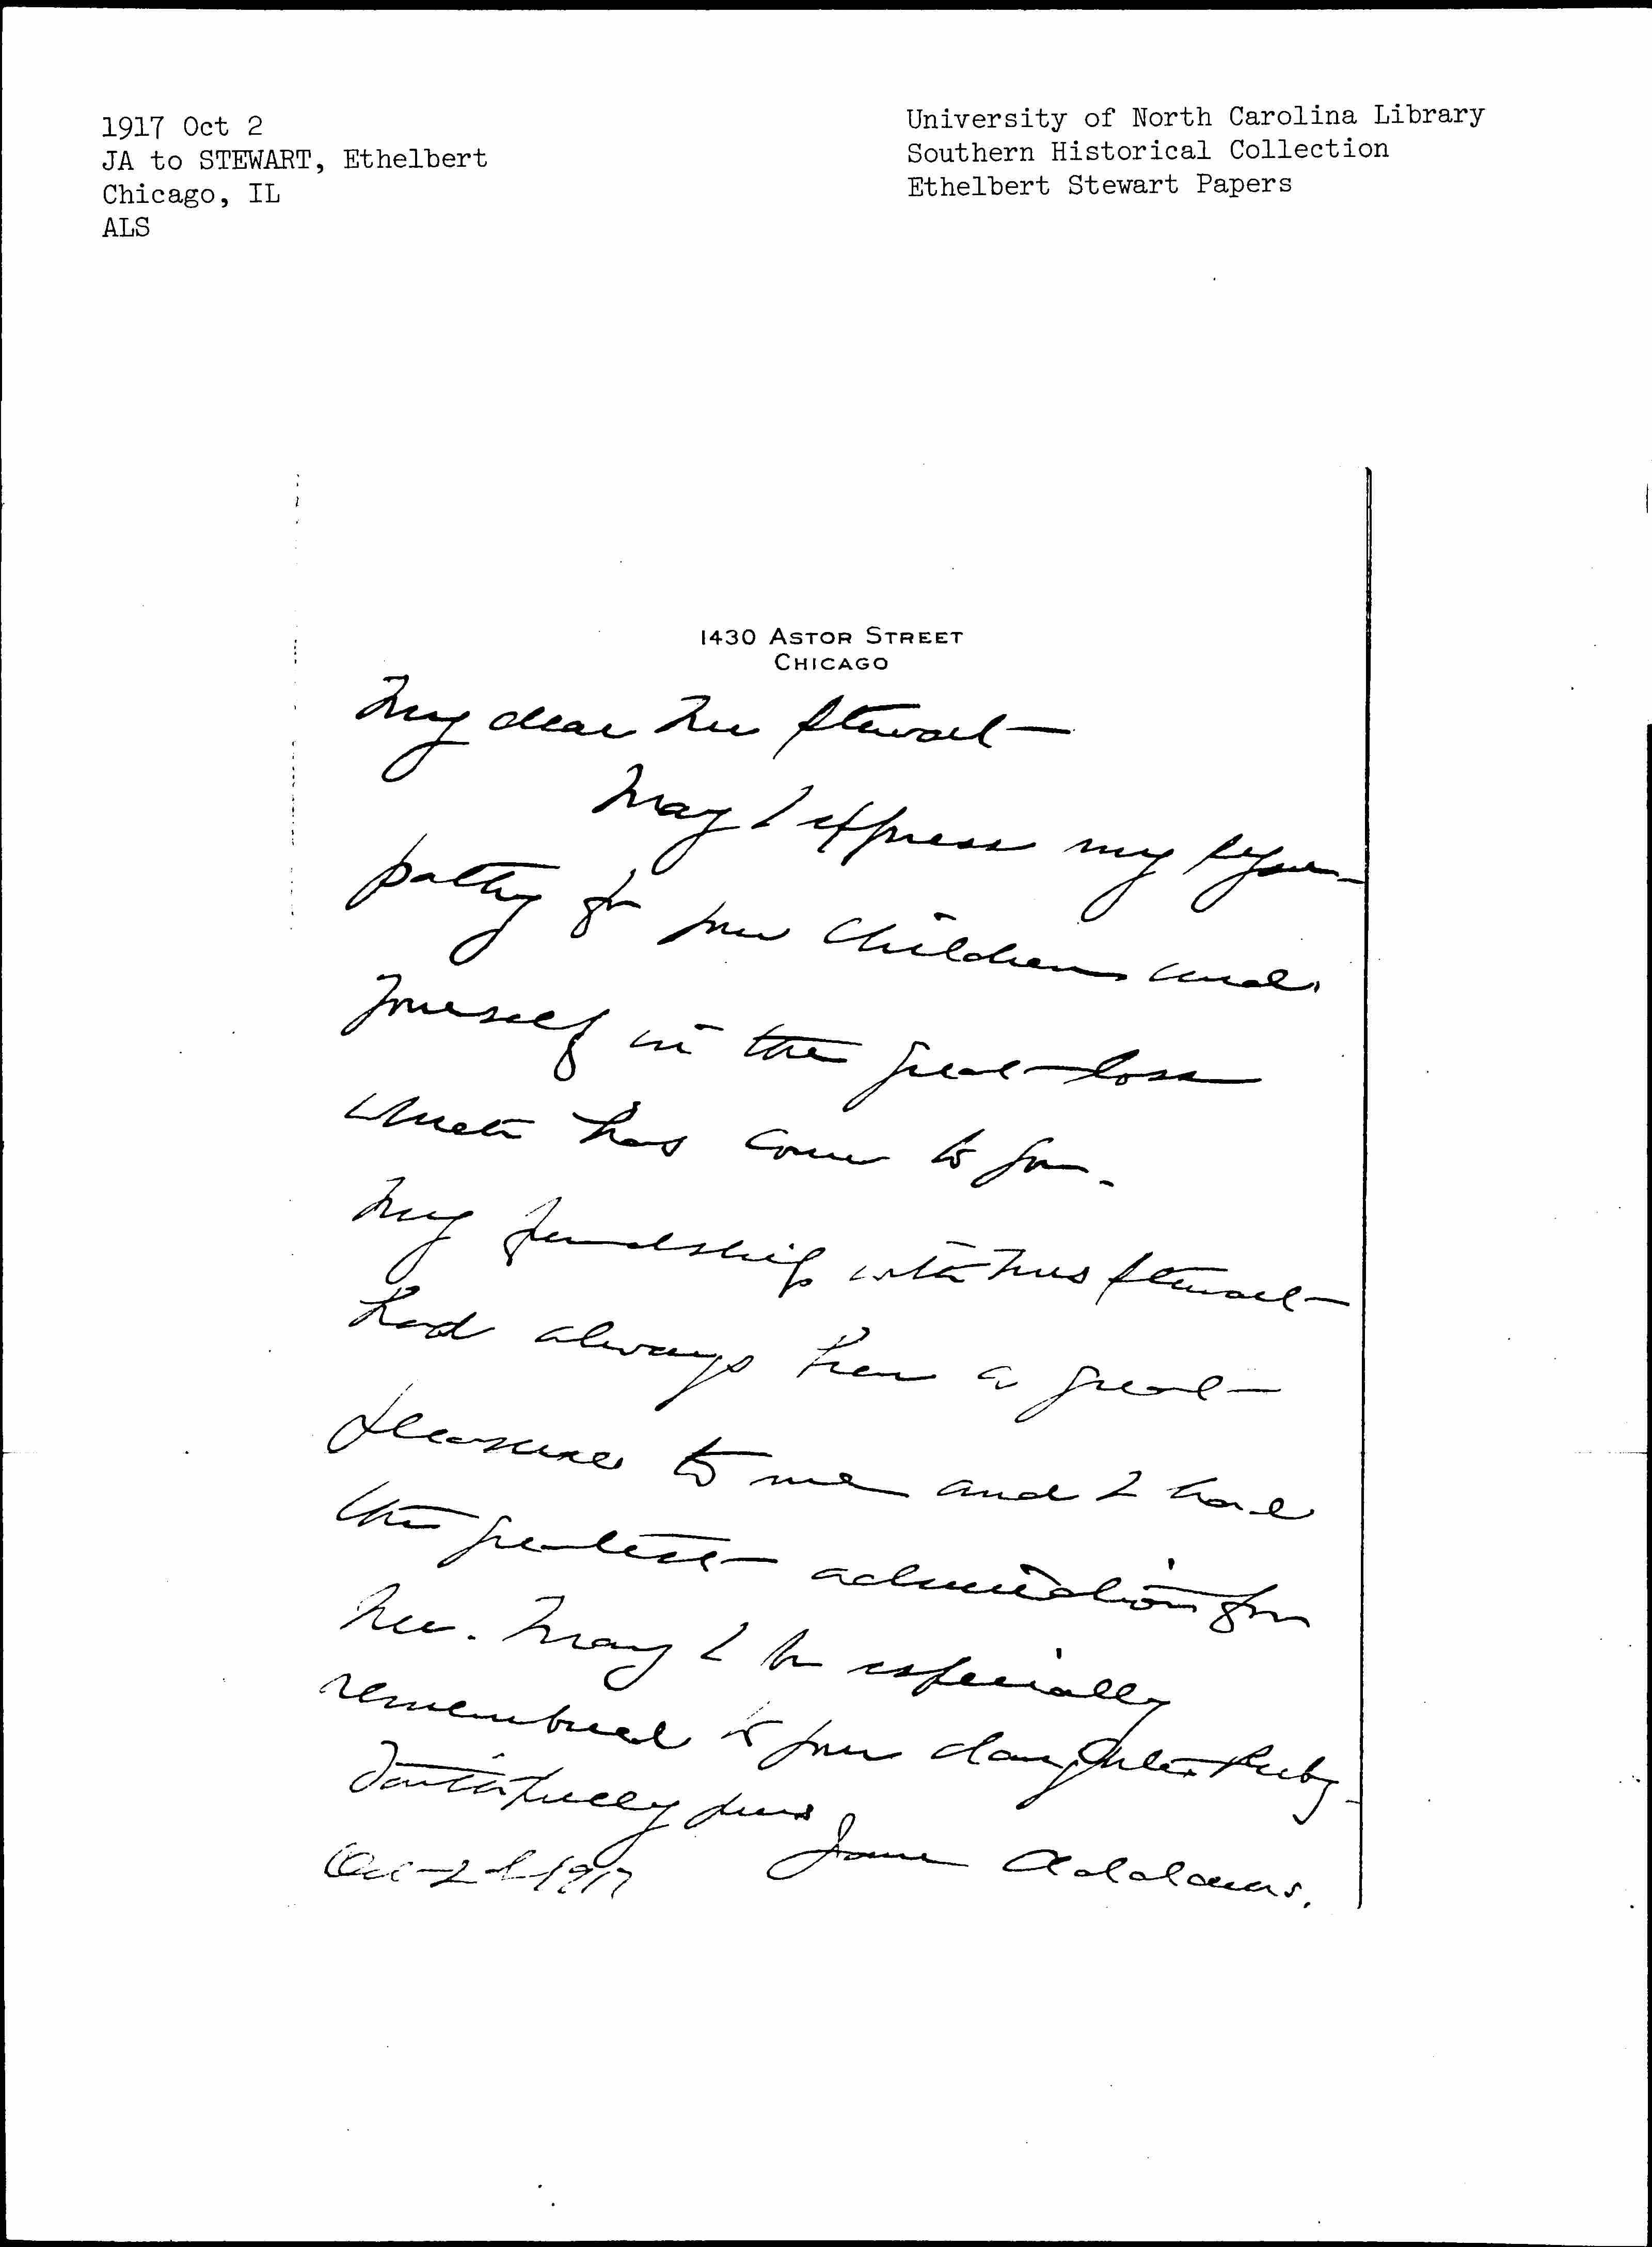 1917 Oct 2
JA to STEWART, Ethelbert
Chicago, IL
ALS
University of North Carolina Library
Southern Historical Collection
Ethelbert Stewart Papers
1430 ASTOR STREET
CHICAGO
My dear Mr Stewart—
May I express my sym-
pathy for your children and
yourself in the great loss
which has come to you.
My friendship with Mrs Stewart
had always been a great
pleasure to me and I had
the greatest admiration for
her. May I be especially
remembered to your daughter Ruby—
Faithfully yours
Jane Addams.
Oct 2d 1917